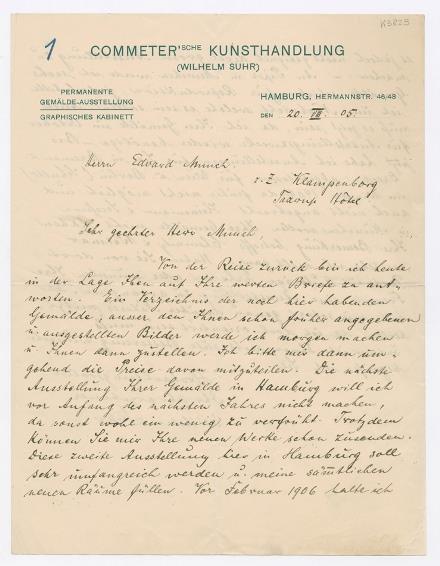 K3825
1
COMMETER'SCHE KUNSTHANDLUNG
(WILHELM SUHR)
PERMANENTE
GEMÄLDE-AUSSTELLUNG
GRAPHISCHES KABINETT
HAMBURG, HERMANNSTR. 46/48
DEN 20. VII. 05.
Herrn Edvard Munch
z. Z. Klampenborg
Taarup Hôtel
Sehr geehrter Herr Munch
Von der Reise zurück bin ich heute
in der Lage Ihnen auf Ihre werten Briefe zu ant-
worten. Ein Verzeichnis der noch hier habenden
Gemälde, ausser den Ihnen schon früher angegebenen
u. ausgestellten Bilder werde ich morgen machen
u. Ihnen dann zustellen. Ich bitte mir dann um-
gehend die Preise davon mitzuteilen. Die nächste
Ausstellung Ihrer Gemälde in Hamburg will ich
vor Anfang des nächsten Jahres nicht machen,
da sonst wohl ein wenig zu verfrüht. Trotzdem
können Sie mir Ihre neuen Werke schon zusenden.
Diese zweite Ausstellung hier in Hamburg soll
sehr umfangreich werden u. meine sämtlichen
neuen Räume füllen. Vor Februar 1906 halte ich